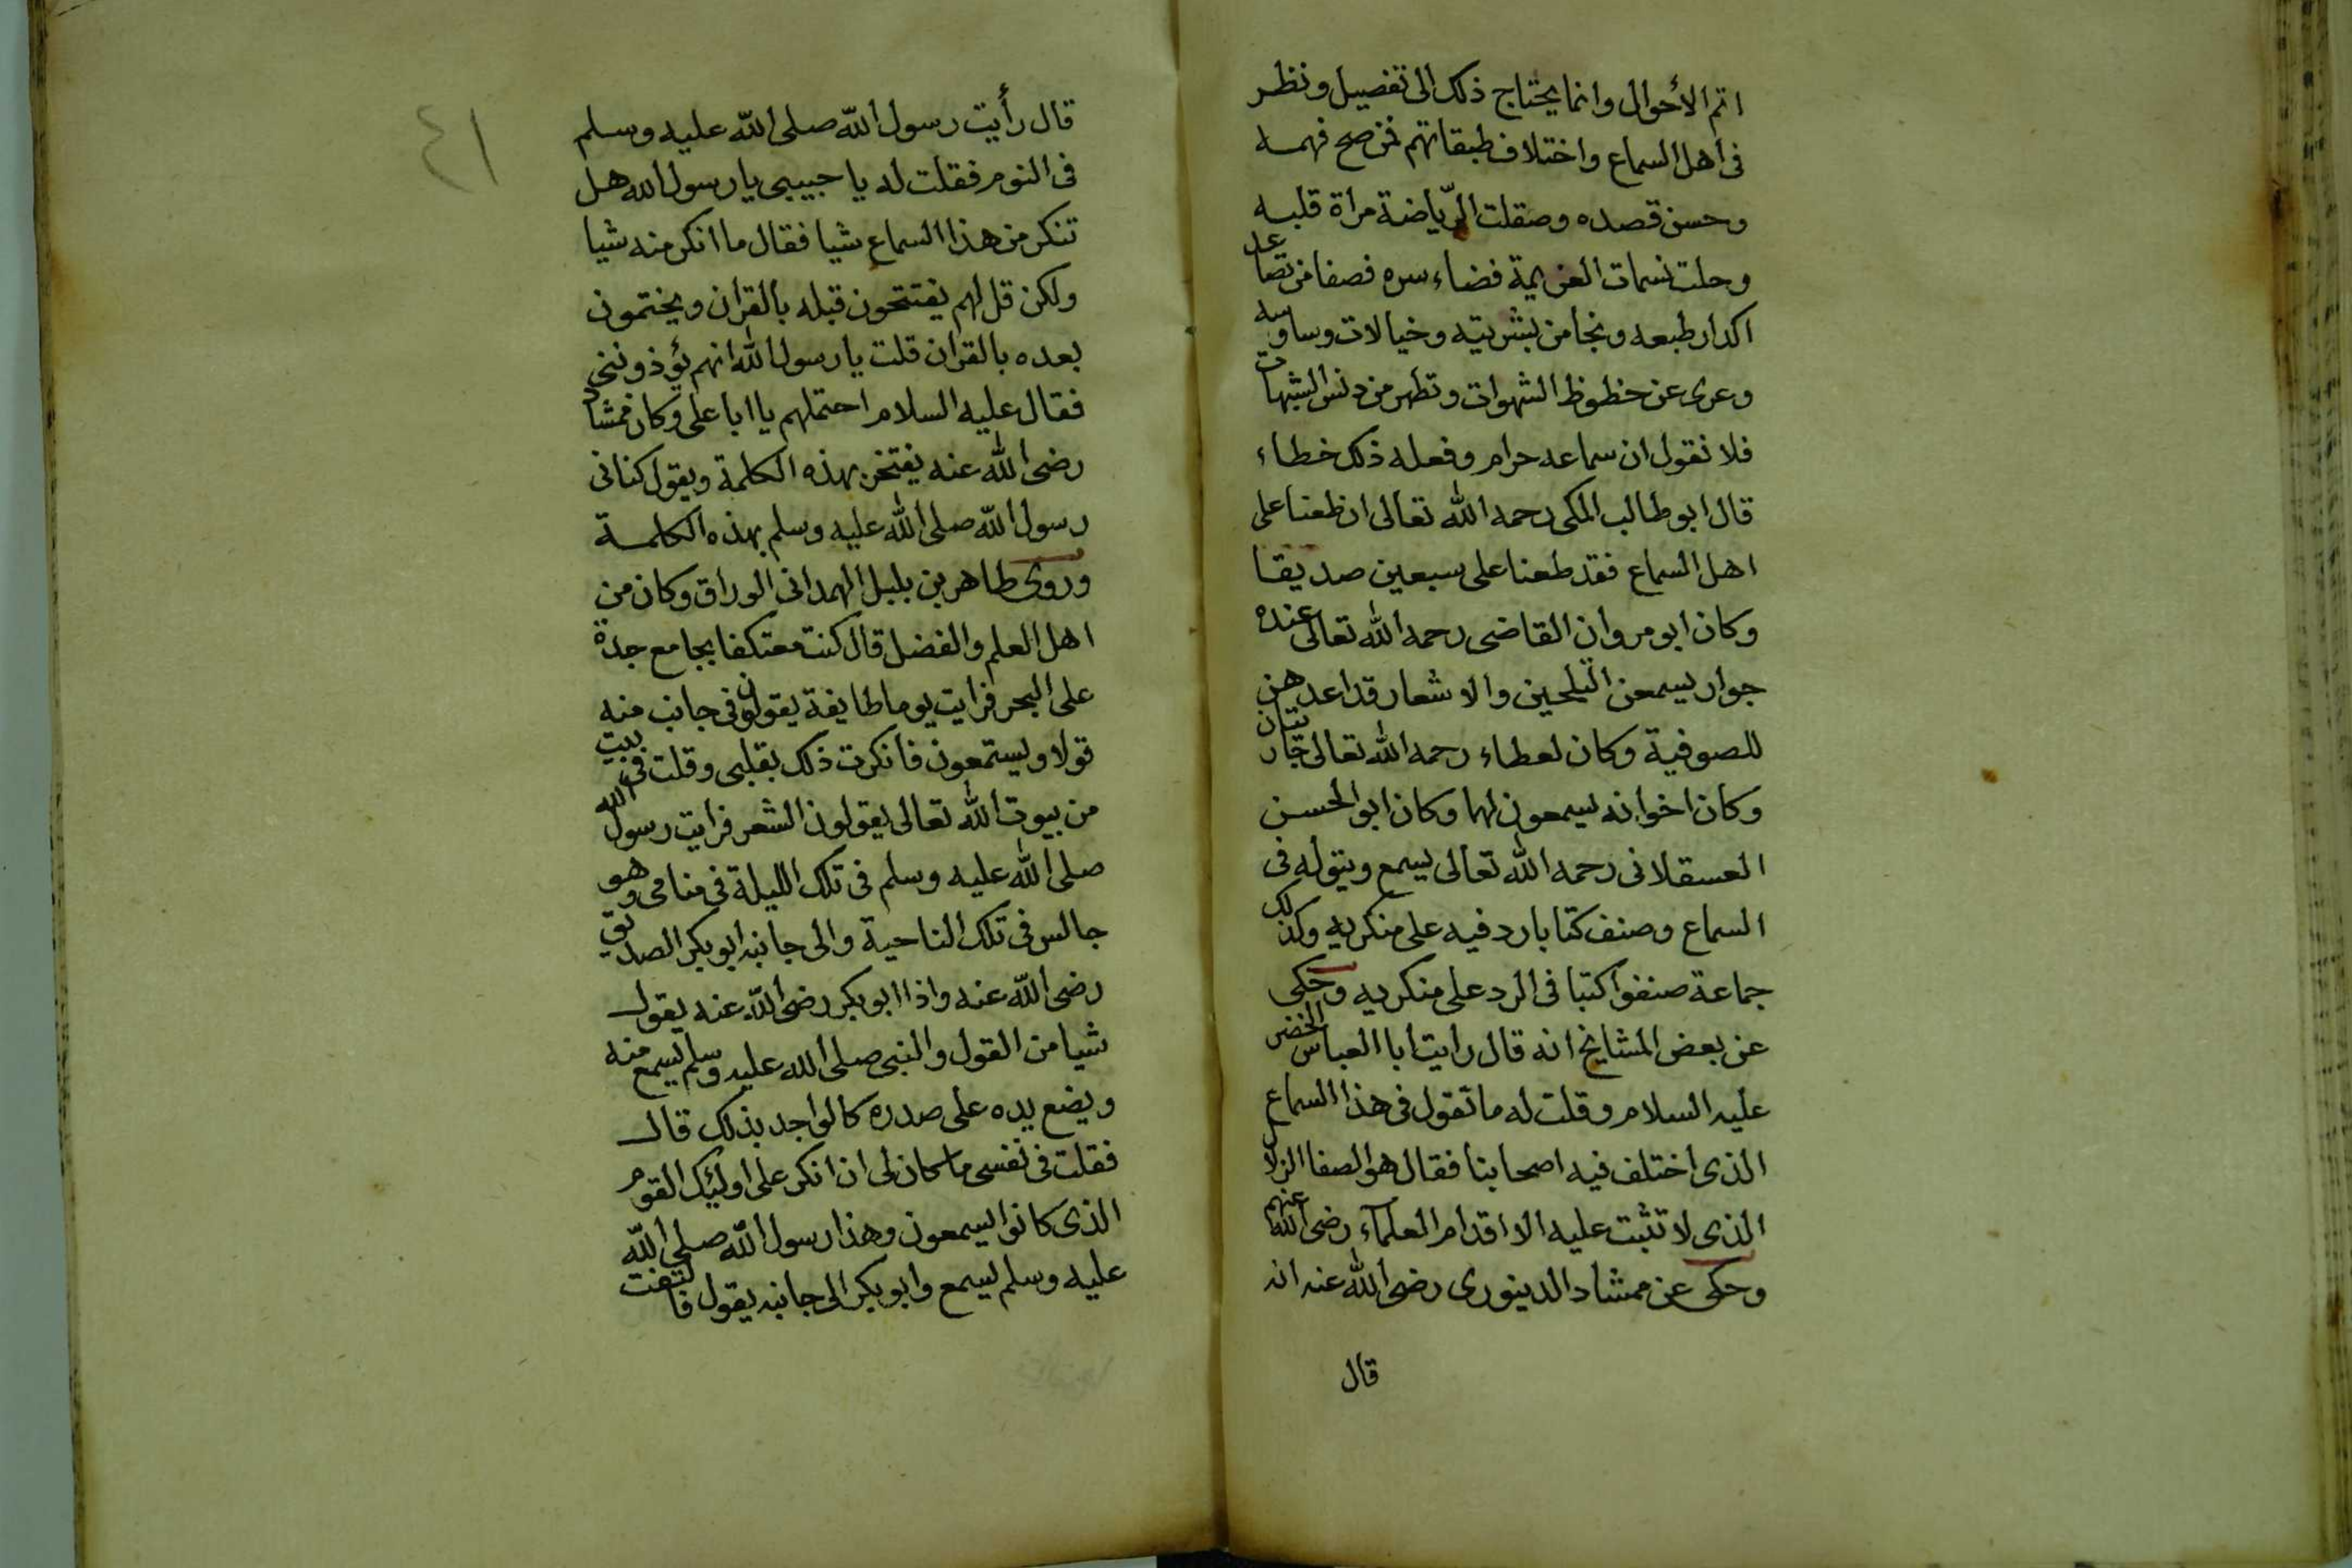 اتم الأحوال وانما يحتاج ذلك الى تفصيل ونظر
فى اهل السماع واختلاف طبقاتهم فمن صح فهمه
وحسن قصده وصقلت الرّياضة مراة قلبه
وحلت نسمات العزيمة فضاء سره فصفا من تصاعد
اكدار طبعه ونجا من بشريته وخيالات وساوسه
وعرى عن حظوظ الشهوات وتطهر من دنس الشبهات
فلا نقول ان سماعه حرام وفعله ذلك خطاء
قال ابو طالب المكى رحمه الله تعالى ان طعنا على
اهل السماع فقد طعنا على سبعين صديقا
وكان ابو مروان القاضى رحمه الله تعالى عنده
جوار يسمعن التلحين والاشعار قد اعدهن
للصوفية وكان لعطاء رحمه الله تعالى جاريتان
وكان اخوانه يسمعون لهما وكان ابو الحسن
العسقلانى رحمه الله تعالى يسمع ويتوله فى
السماع وصنف كتابا رد فيه على منكريه وكذلك
جماعة صنفوا كتبا فى الرد على منكريه وحكى
عن بعض المشايخ انه قال رايت ابا العباس الخضر
عليه السلام وقلت له ما تقول فى هذا السماع
الذى اختلف فيه اصحابنا فقال هو الصفا الزلال
الذى لا تثبت عليه الا اقدام العلماء رضى الله عنهم
وحكى عن ممشاد الدينورى رضى الله عنه انه
قال
٤١
قال رأيت رسول الله صلى الله عليه وسلم
فى النوم فقلت له يا حبيبى يا رسول الله هل
تنكر من هذا السماع شيا فقال ما انكر منه شيا
ولكن قل لهم يفتتحون قبله بالقران ويختمون
بعده بالقران قلت يا رسول الله انهم يؤذوننى
فقال عليه السلام احتملهم يا ابا على وكان ممشاد
رضى الله عنه يفتخر بهذه الكلمة ويقول كنانى
رسول الله صلى الله عليه وسلم بهذه الكلمة
وروى طاهر بن بلبل الهمدانى الوراق وكان من
اهل العلم والفضل قال كنت معتكفا بجامع جدة
على البحر فرايت يوما طايفة يقولون فى جانب منه
قولا ويستمعون فانكرت ذلك بقلبى وقلت فى بيت
من بيوت الله تعالى يقولون الشعر فرايت رسول الله
صلى الله عليه وسلم فى تلك الليلة فى منامى وهو
جالس فى تلك الناحية والى جانبه ابو بكر الصديق
رضى الله عنه واذا ابو بكر رضى الله عنه يقول
شيا من القول والنبى صلى الله عليه وسلم يسمع منه
ويضع يده على صدره كالواجد بذلك قال
فقلت فى نفسى ما كان لى ان انكر على اولئك القوم
الذى كانوا يسمعون وهذا رسول الله صلى الله
عليه وسلم يسمع وابو بكر الى جانبه يقول فالتفت